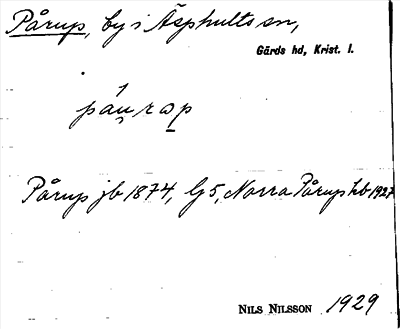 Pårup, by i Äsphults sn,
Gärds hd, Krist. l.
páu̯rəp
Pårup jb 1874, G 5, Norra Pårup kb 1927
NILS NILSSON 1929